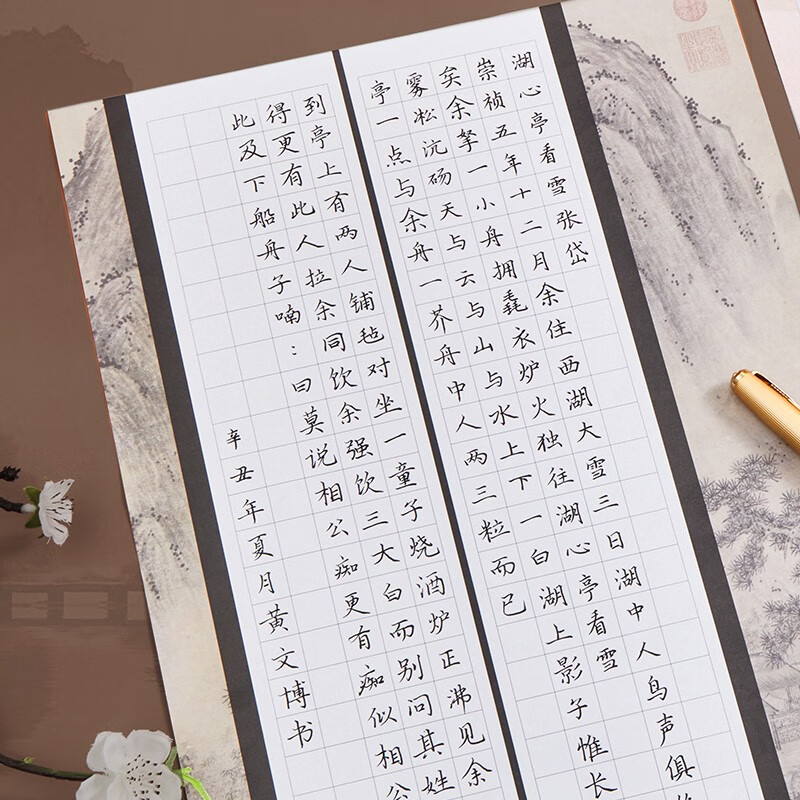 湖心亭看雪张岱
崇祯五年十二月余住西湖大雪三日湖中人鸟声俱
矣余拏一小舟拥毳衣炉火独往湖心亭看雪
雾凇沆砀天与云与山与水上下一白湖上影子惟长
亭一点与余舟一芥舟中人两三粒而已
到亭上有两人铺毡对坐一童子烧酒炉正沸见余
得更有此人拉余同饮余强饮三大白而别问其姓
此及下船舟子喃：曰莫说相公痴更有痴似相公
辛丑年夏月黄文博书